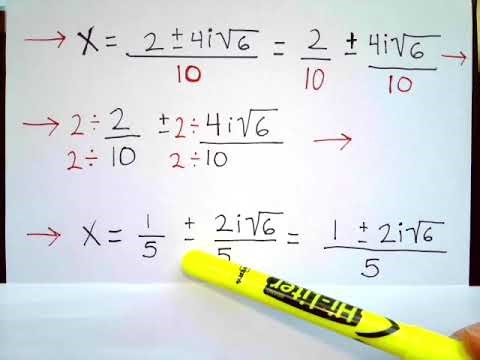 → X = (2 ± 4i√6)/10 = 2/10 ± 4i√6/10 →
→ 2÷2/2÷10 ± 2÷4i√6/2÷10 →
→ X = 1/5 ± 2i√6/5 = (1 ± 2i√6)/5
Hi-Liter